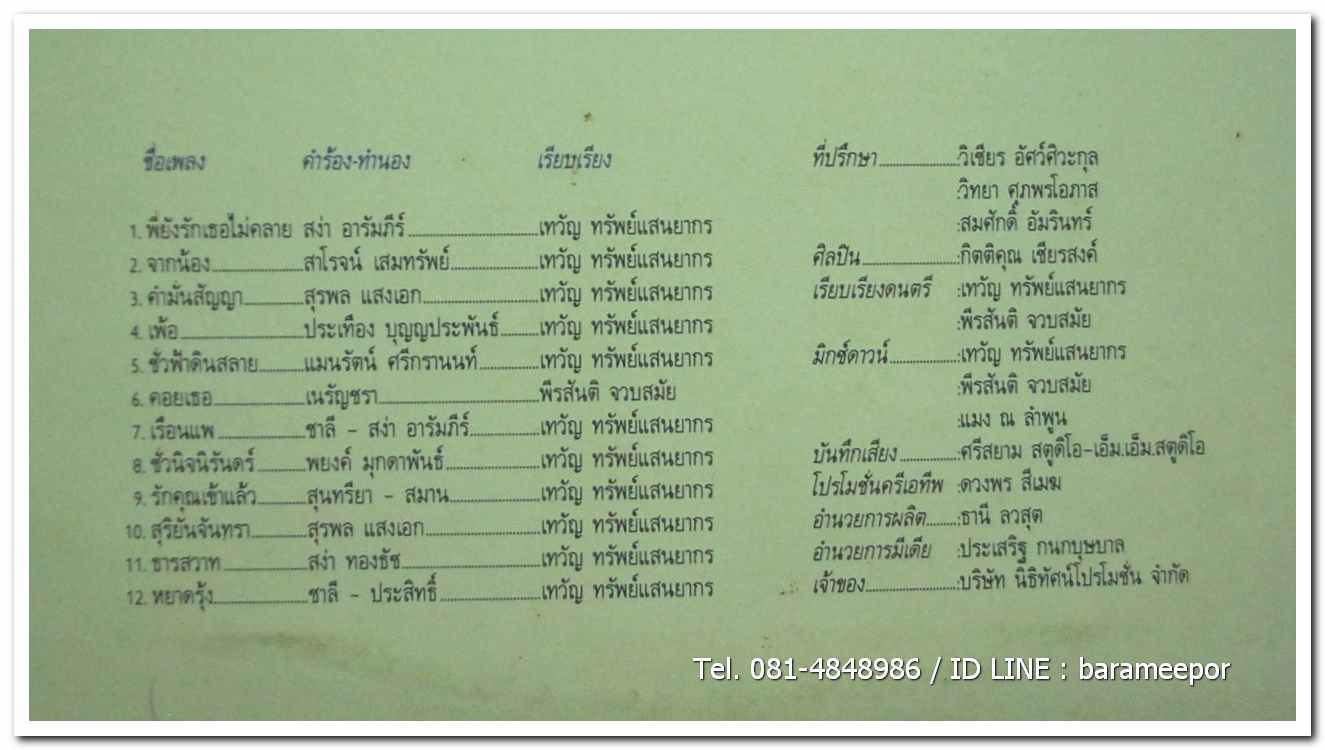 ชื่อเพลง คำร้อง-ทำนอง เรียบเรียง
1. พี่ยังรักเธอไม่คลาย สง่า อารัมภีร์ เทวัญ ทรัพย์แสนยากร
2. จากน้อง สาโรจน์ เสมทรัพย์ เทวัญ ทรัพย์แสนยากร
3. คำมั่นสัญญา สุรพล แสงเอก เทวัญ ทรัพย์แสนยากร
4. เพ้อ ประเทือง บุญญประพันธ์ เทวัญ ทรัพย์แสนยากร
5. ชั่วฟ้าดินสลาย แมนรัตน์ ศรีกรานนท์ เทวัญ ทรัพย์แสนยากร
6. คอยเธอ เนรัญชรา พีรสันติ จวบสมัย
7. เรือนแพ ชาลี - สง่า อารัมภีร์ เทวัญ ทรัพย์แสนยากร
8. ชั่วนิจนิรันดร์ พยงค์ มุกดาพันธ์ เทวัญ ทรัพย์แสนยากร
9. รักคุณเข้าแล้ว สุนทรียา - สมาน เทวัญ ทรัพย์แสนยากร
10. สุริยันจันทรา สุรพล แสงเอก เทวัญ ทรัพย์แสนยากร
11. ธารสวาท สง่า ทองธัช เทวัญ ทรัพย์แสนยากร
12. หยาดรุ้ง ชาลี - ประสิทธิ์ เทวัญ ทรัพย์แสนยากร
ที่ปรึกษา :วิเชียร อัศว์ศิวะกุล
:วิทยา ศุภพรโอภาส
:สมศักดิ์ อัมรินทร์
ศิลปิน :กิตติคุณ เชียรสงค์
เรียบเรียงดนตรี :เทวัญ ทรัพย์แสนยากร
:พีรสันติ จวบสมัย
มิกซ์ดาวน์ :เทวัญ ทรัพย์แสนยากร
:พีรสันติ จวบสมัย
:แมง ณ ลำพูน
บันทึกเสียง :ศรีสยาม สตูดิโอ-เอ็ม.เอ็ม.สตูดิโอ
โปรโมชั่นครีเอทีพ :ดวงพร สีเมฆ
อำนวยการผลิต :ธานี ลวสุต
อำนวยการมีเดีย :ประเสริฐ กนกบุษบาล
เจ้าของ :บริษัท นิธิทัศน์โปรโมชั่น จำกัด
Tel. 081-4848986 / ID LINE : barameepor